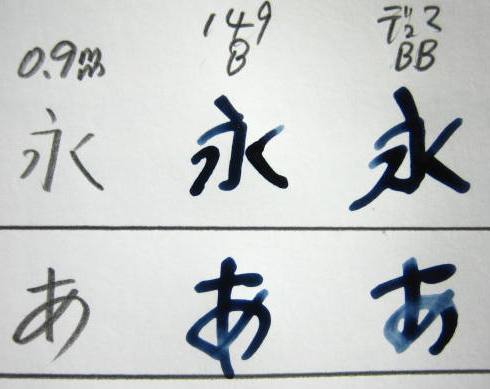 0.9mm 149 B デュマ BB
永 永 永
あ あ あ